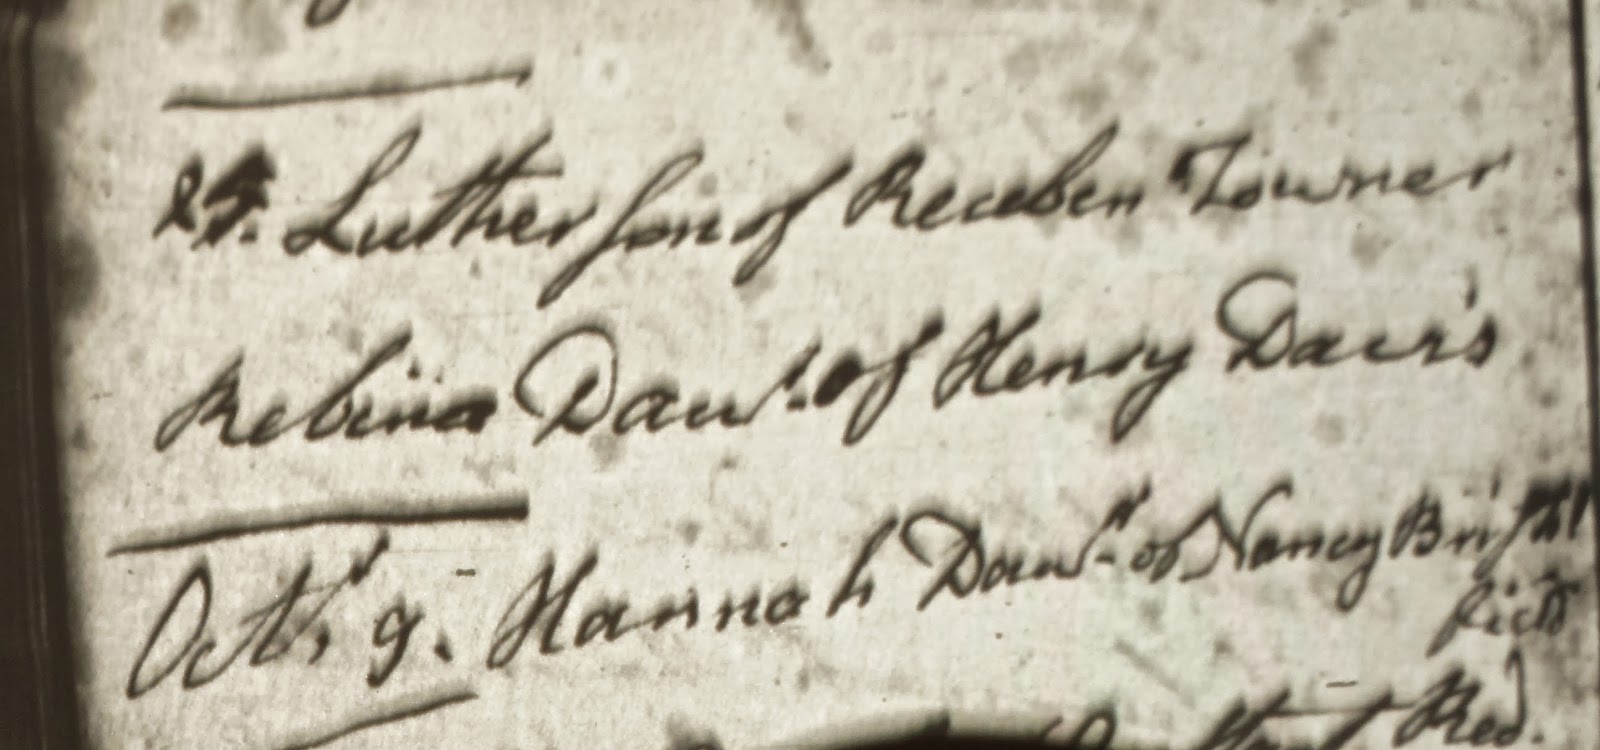 Luther son of Reueben Towner
Rebina Dawr. of Henry Davis
Octr. 9. Hannah Dawr. of Nancy Bright
sick
Red.